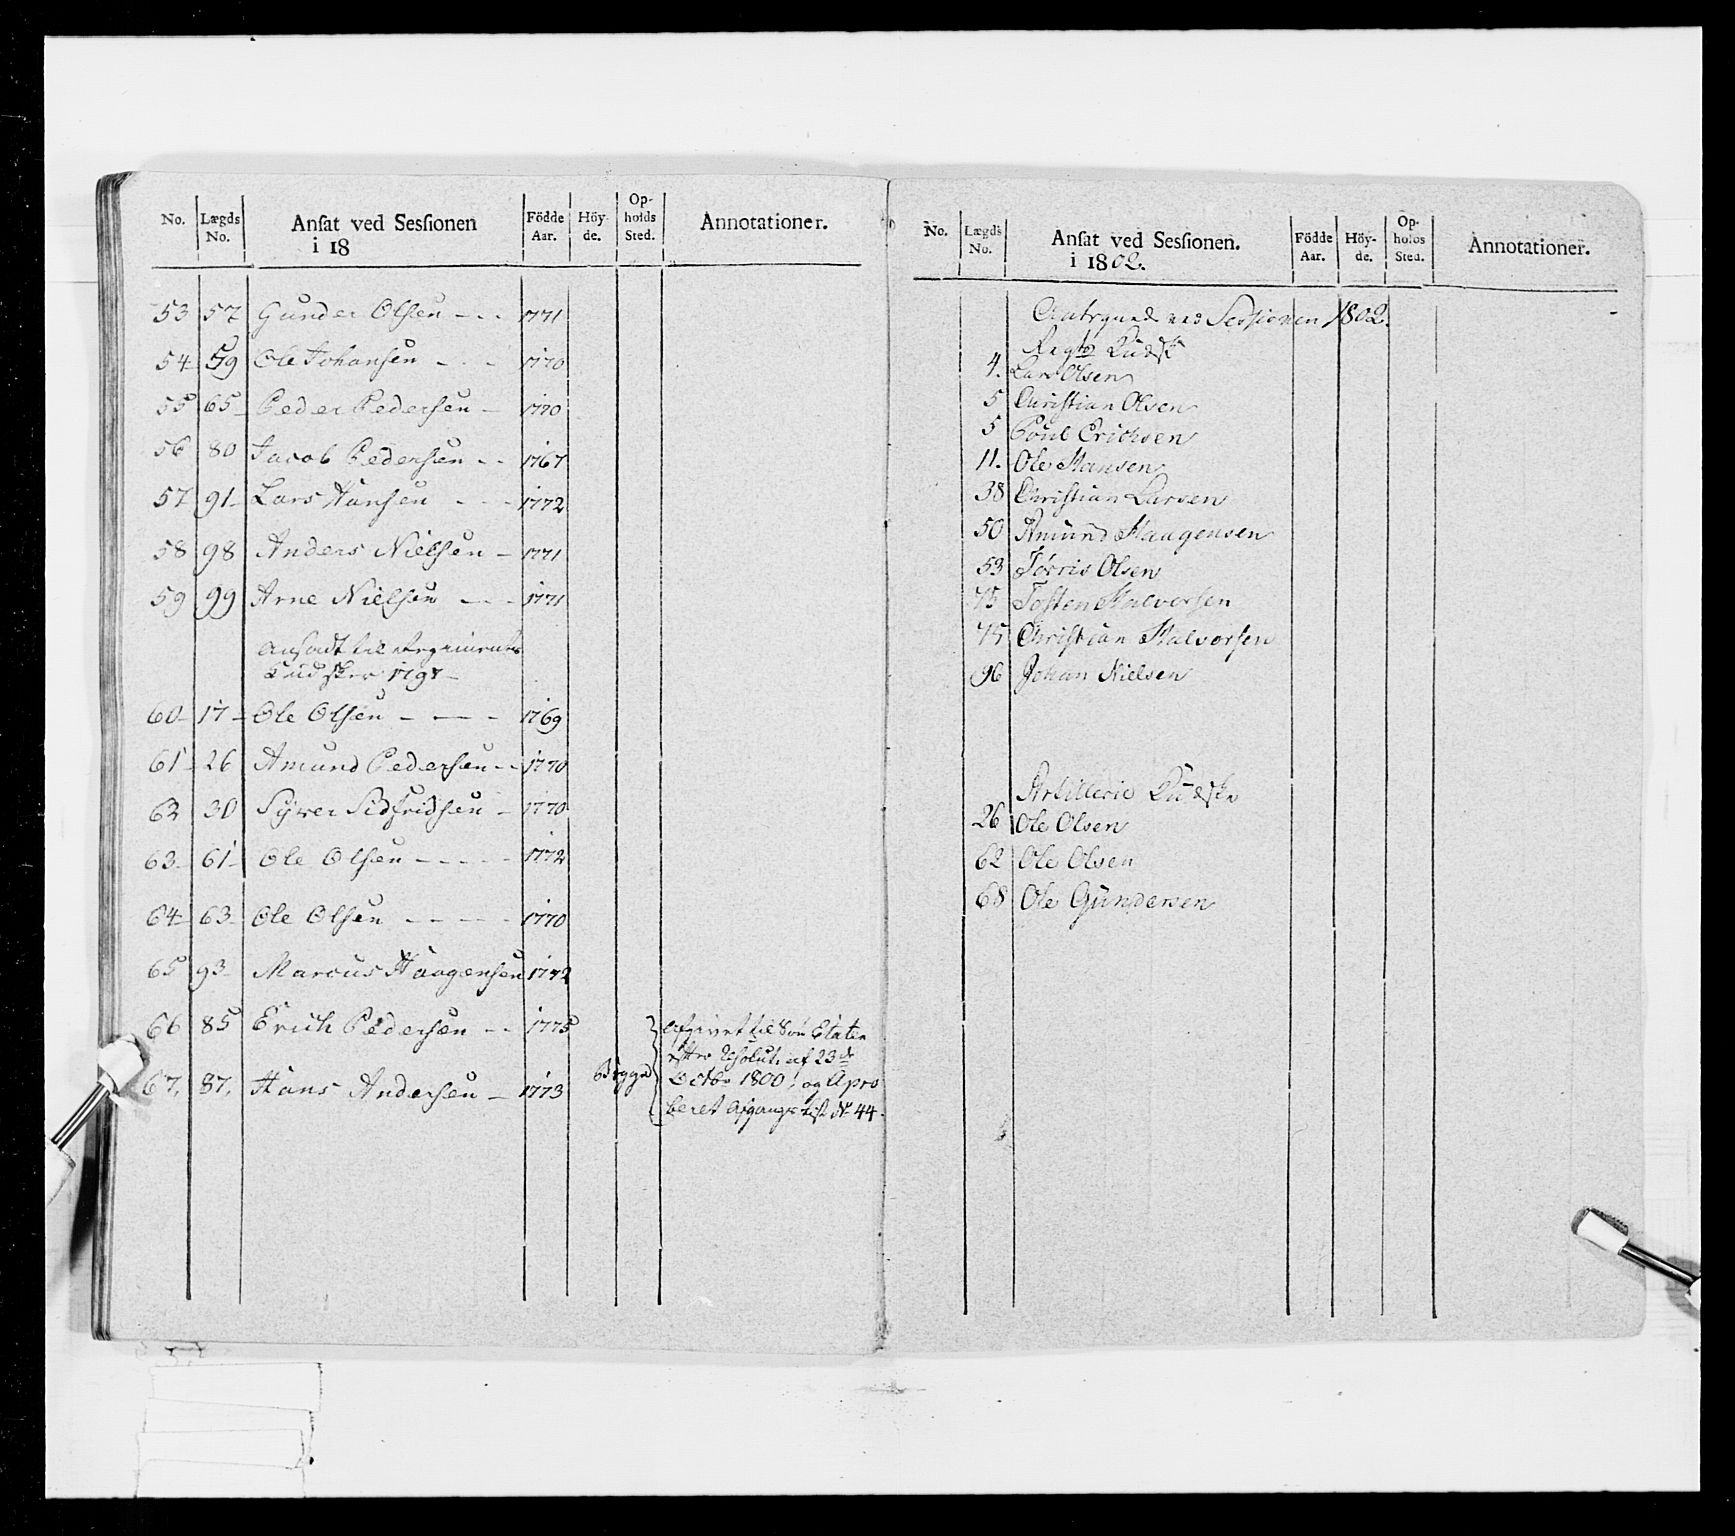 No. Lægds No. Ansat ved Sessionen i 18 Födde Aar. Höyde. Opholds Sted. Annotationer.
53 57 Gunder Olsen 1771
54 59 Ole Johansen 1770
55 65 Peder Pedersen 1770
56 80 Jacob Pedersen 1767
57 91 Lars Hansen 1772
58 98 Anders Nielsen 1771
59 99 Arne Nielsen 1771
Ansadt til Regiments
Kudsker 1798
60 17 Ole Olsen 1769
61 26 Amund Pedersen 1770
62 30 Syver Sidfridsen 1770
63 61 Ole Olsen 1772
64 63 Ole Olsen 1770
65 93 Marcus Haagensen 1772
66 85 Erich Pedersen 1775
67. 87. Hans Andersen 1773 Bygd
Afgivet til Søe Etaten
efter Resolut: af 23de
Octbr 1800, og Apro
beret Afgangs List No 44.
No. Lægds No. Ansat ved Sessionen. i 1802. Födde Aar. Höyde. Opholds Sted. Annotationer.
ved Sessionen 1802.
Regts Kudsk
4. Lars Olsen
5 Christian Olsen
5 Poul Erichsen
11. Ole Hansen
38 Christian Larsen
50 Amund Haagensen
53 Jørris Olsen
75 Tosten Halvorsen
75 Christian Halvorsen
96 Johan Nielsen
Artillerie Kudske
26 Ole Olsen
62 Ole Olsen
68 Ole Gundersen